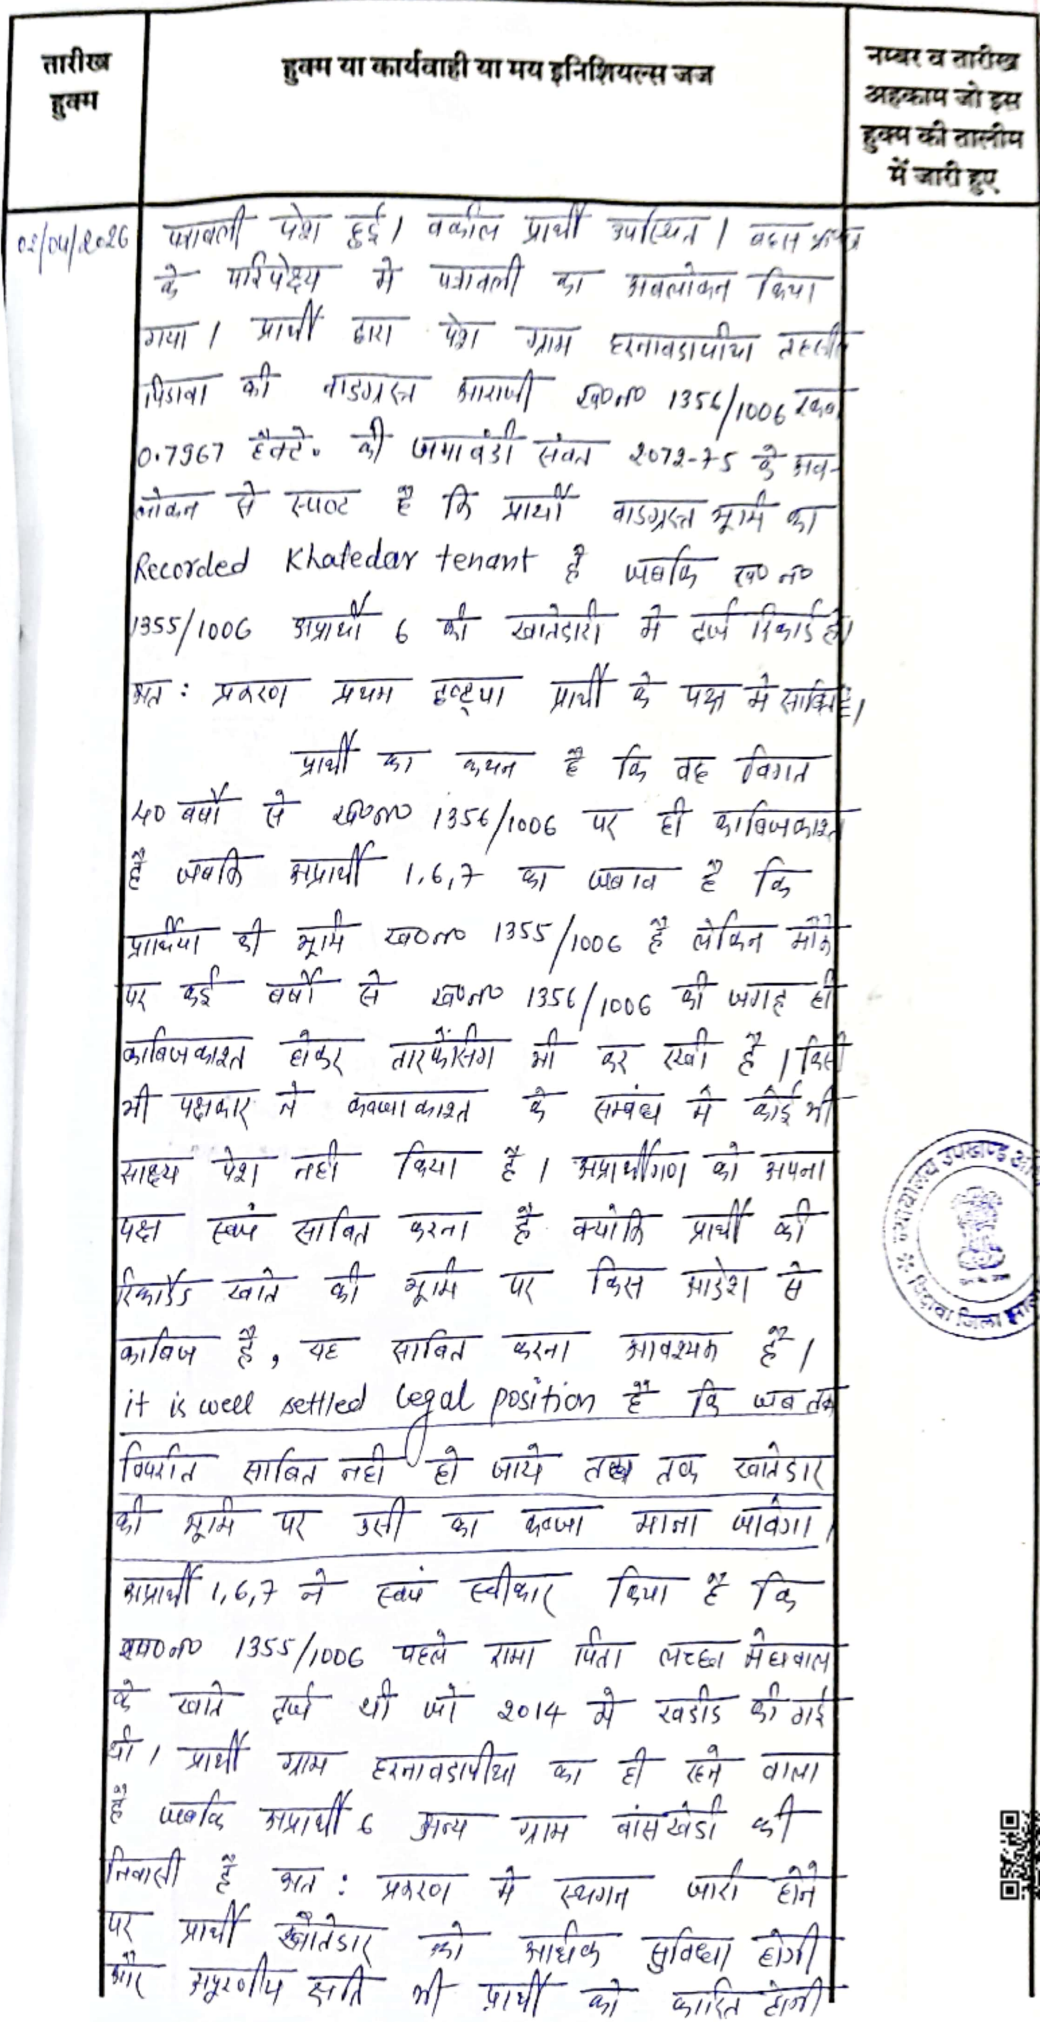 तारीख
हुक्म
हुक्म या कार्यवाही या मय इनिशियल्स जज
नम्बर व तारीख
अहकाम जो इस
हुक्म की तालीम
में जारी हुए
02/04/2026
पत्रावली पेश हुई। वकील प्रार्थी उपस्थित। बहस
के परिपेक्ष्य मे पत्रावली का अवलोकन किया
गया। प्रार्थी द्वारा पेश ग्राम हरनावडापीथा तहसील
पिडावा की वादग्रस्त आराजी ख0न0 1356/1006 रकबा
0.7967 हैक्टे. की जमाबंदी संवत 2072-75 के अव-
लोकन से स्पष्ट है कि प्रार्थी वादग्रस्त भूमि का
Recorded Khatedar tenant है जबकि ख0 न0
1355/1006 अप्रार्थी 6 की खातेदारी मे दर्ज रिकार्ड है।
अत: प्रकरण प्रथम दृष्ट्या प्रार्थी के पक्ष मे साबित है।
प्रार्थी का कथन है कि वह विगत
40 वर्षों से ख0न0 1356/1006 पर ही काबिजकाश्त
है जबकि अप्रार्थी 1,6,7 का जवाब है कि
प्रार्थिया की भूमि ख0न0 1355/1006 है लेकिन मौके
पर कई वर्षों से ख0न0 1356/1006 की जगह ही
काबिजकाश्त होकर तारफेंसिंग भी कर रखी है। किसी
भी पक्षकार ने कब्जाकाश्त के सम्बंध मे कोई भी
साक्ष्य पेश नही किया है। अप्रार्थीगण को अपना
पक्ष स्वयं साबित करना है क्योकि प्रार्थी की
रिकार्डेड खाते की भूमि पर किस आदेश से
काबिज है, यह साबित करना आवश्यक है।
it is well settled legal position है कि जब तक
विपरीत साबित नही हो जाये तब तक खातेदार
की भूमि पर उसी का कब्जा माना जावेगा।
अप्रार्थी 1,6,7 ने स्वयं स्वीकार किया है कि
ख0न0 1355/1006 पहले रामा पिता लच्छा मेघवाल
के खाते दर्ज थी जो 2014 मे खरीद की गई
थी। प्रार्थी ग्राम हरनावडापीथा का ही रहने वाला
है जबकि अप्रार्थी 6 अन्य ग्राम बांसखेडी की
निवासी है अत: प्रकरण मे स्थगन जारी होने
पर प्रार्थी खातेदार को अधिक सुविधा होगी
और अपूरणीय क्षति भी प्रार्थी को कारित होगी
न्यायालय उपखण्ड
पिड़ावा जिला